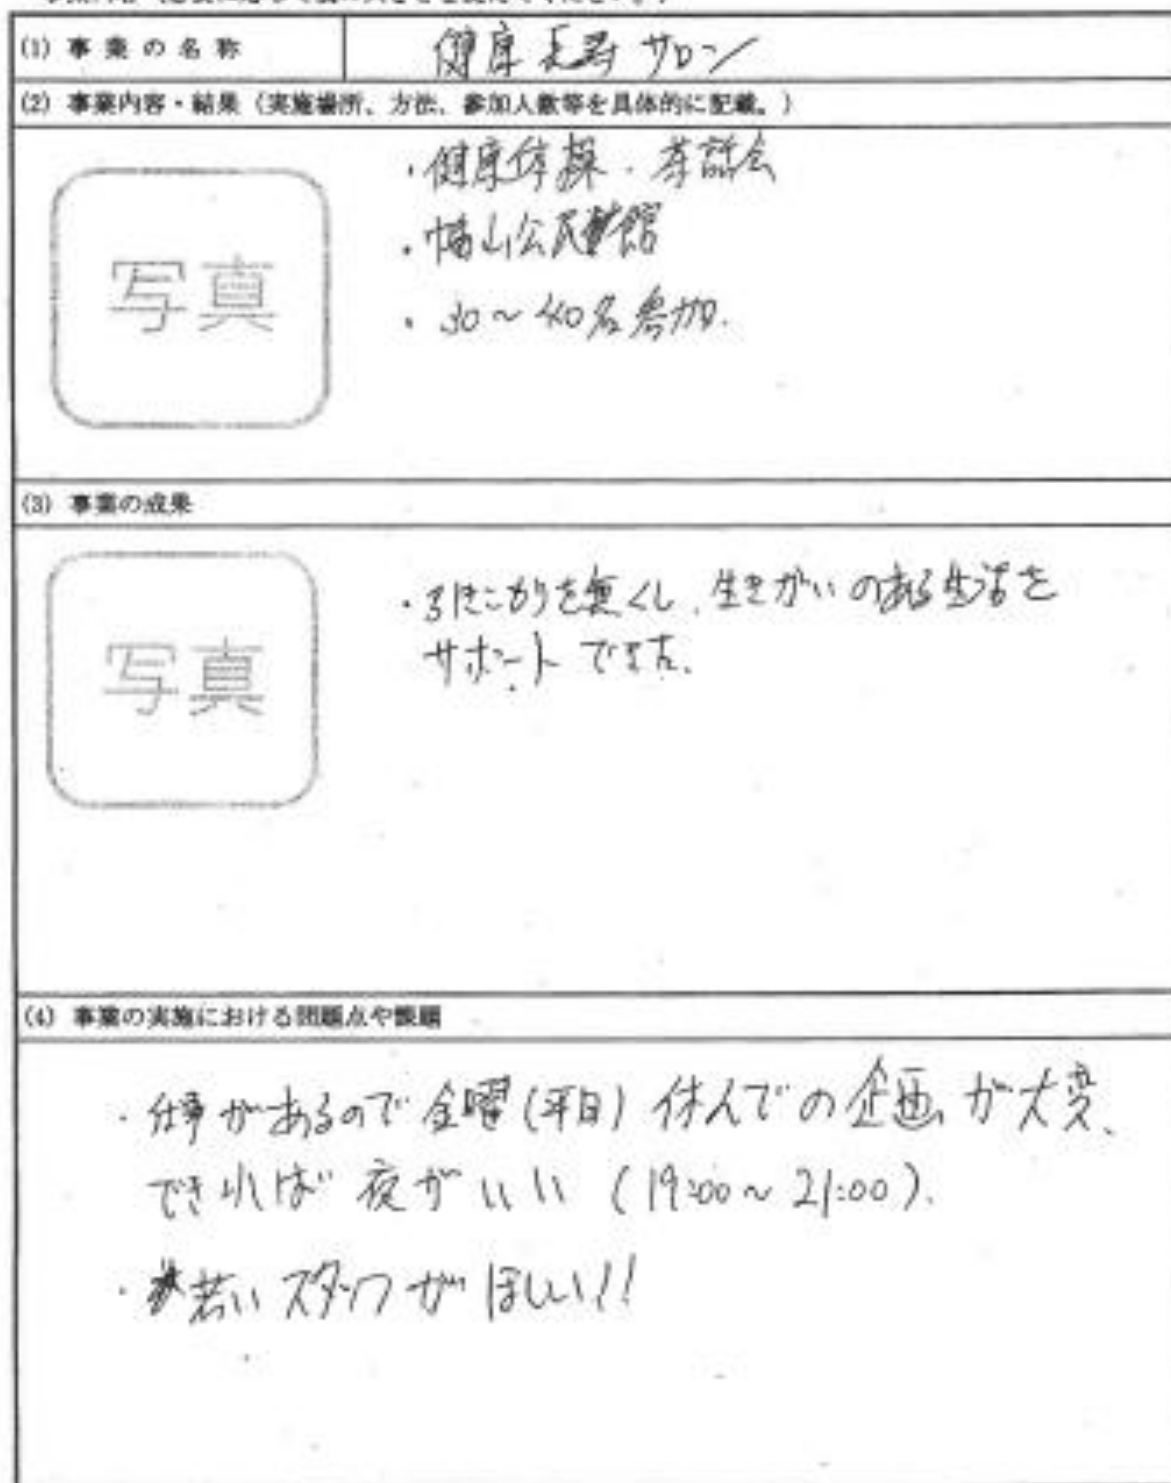 (1) 事業の名称
健康長寿サロン
(2) 事業内容・結果（実施場所、方法、参加人数等を具体的に記載。）
・健康体操・茶話会
・幡山公民館
・30～40名参加.
写真
(3) 事業の成果
・引きこもりを無くし、生きがいのある生活を
サポートできた.
写真
(4) 事業の実施における問題点や課題
・仕事があるので金曜(平日)休んでの企画が大変、
できれば夜がいい (19:00～21:00).
・若いスタッフがほしい!!